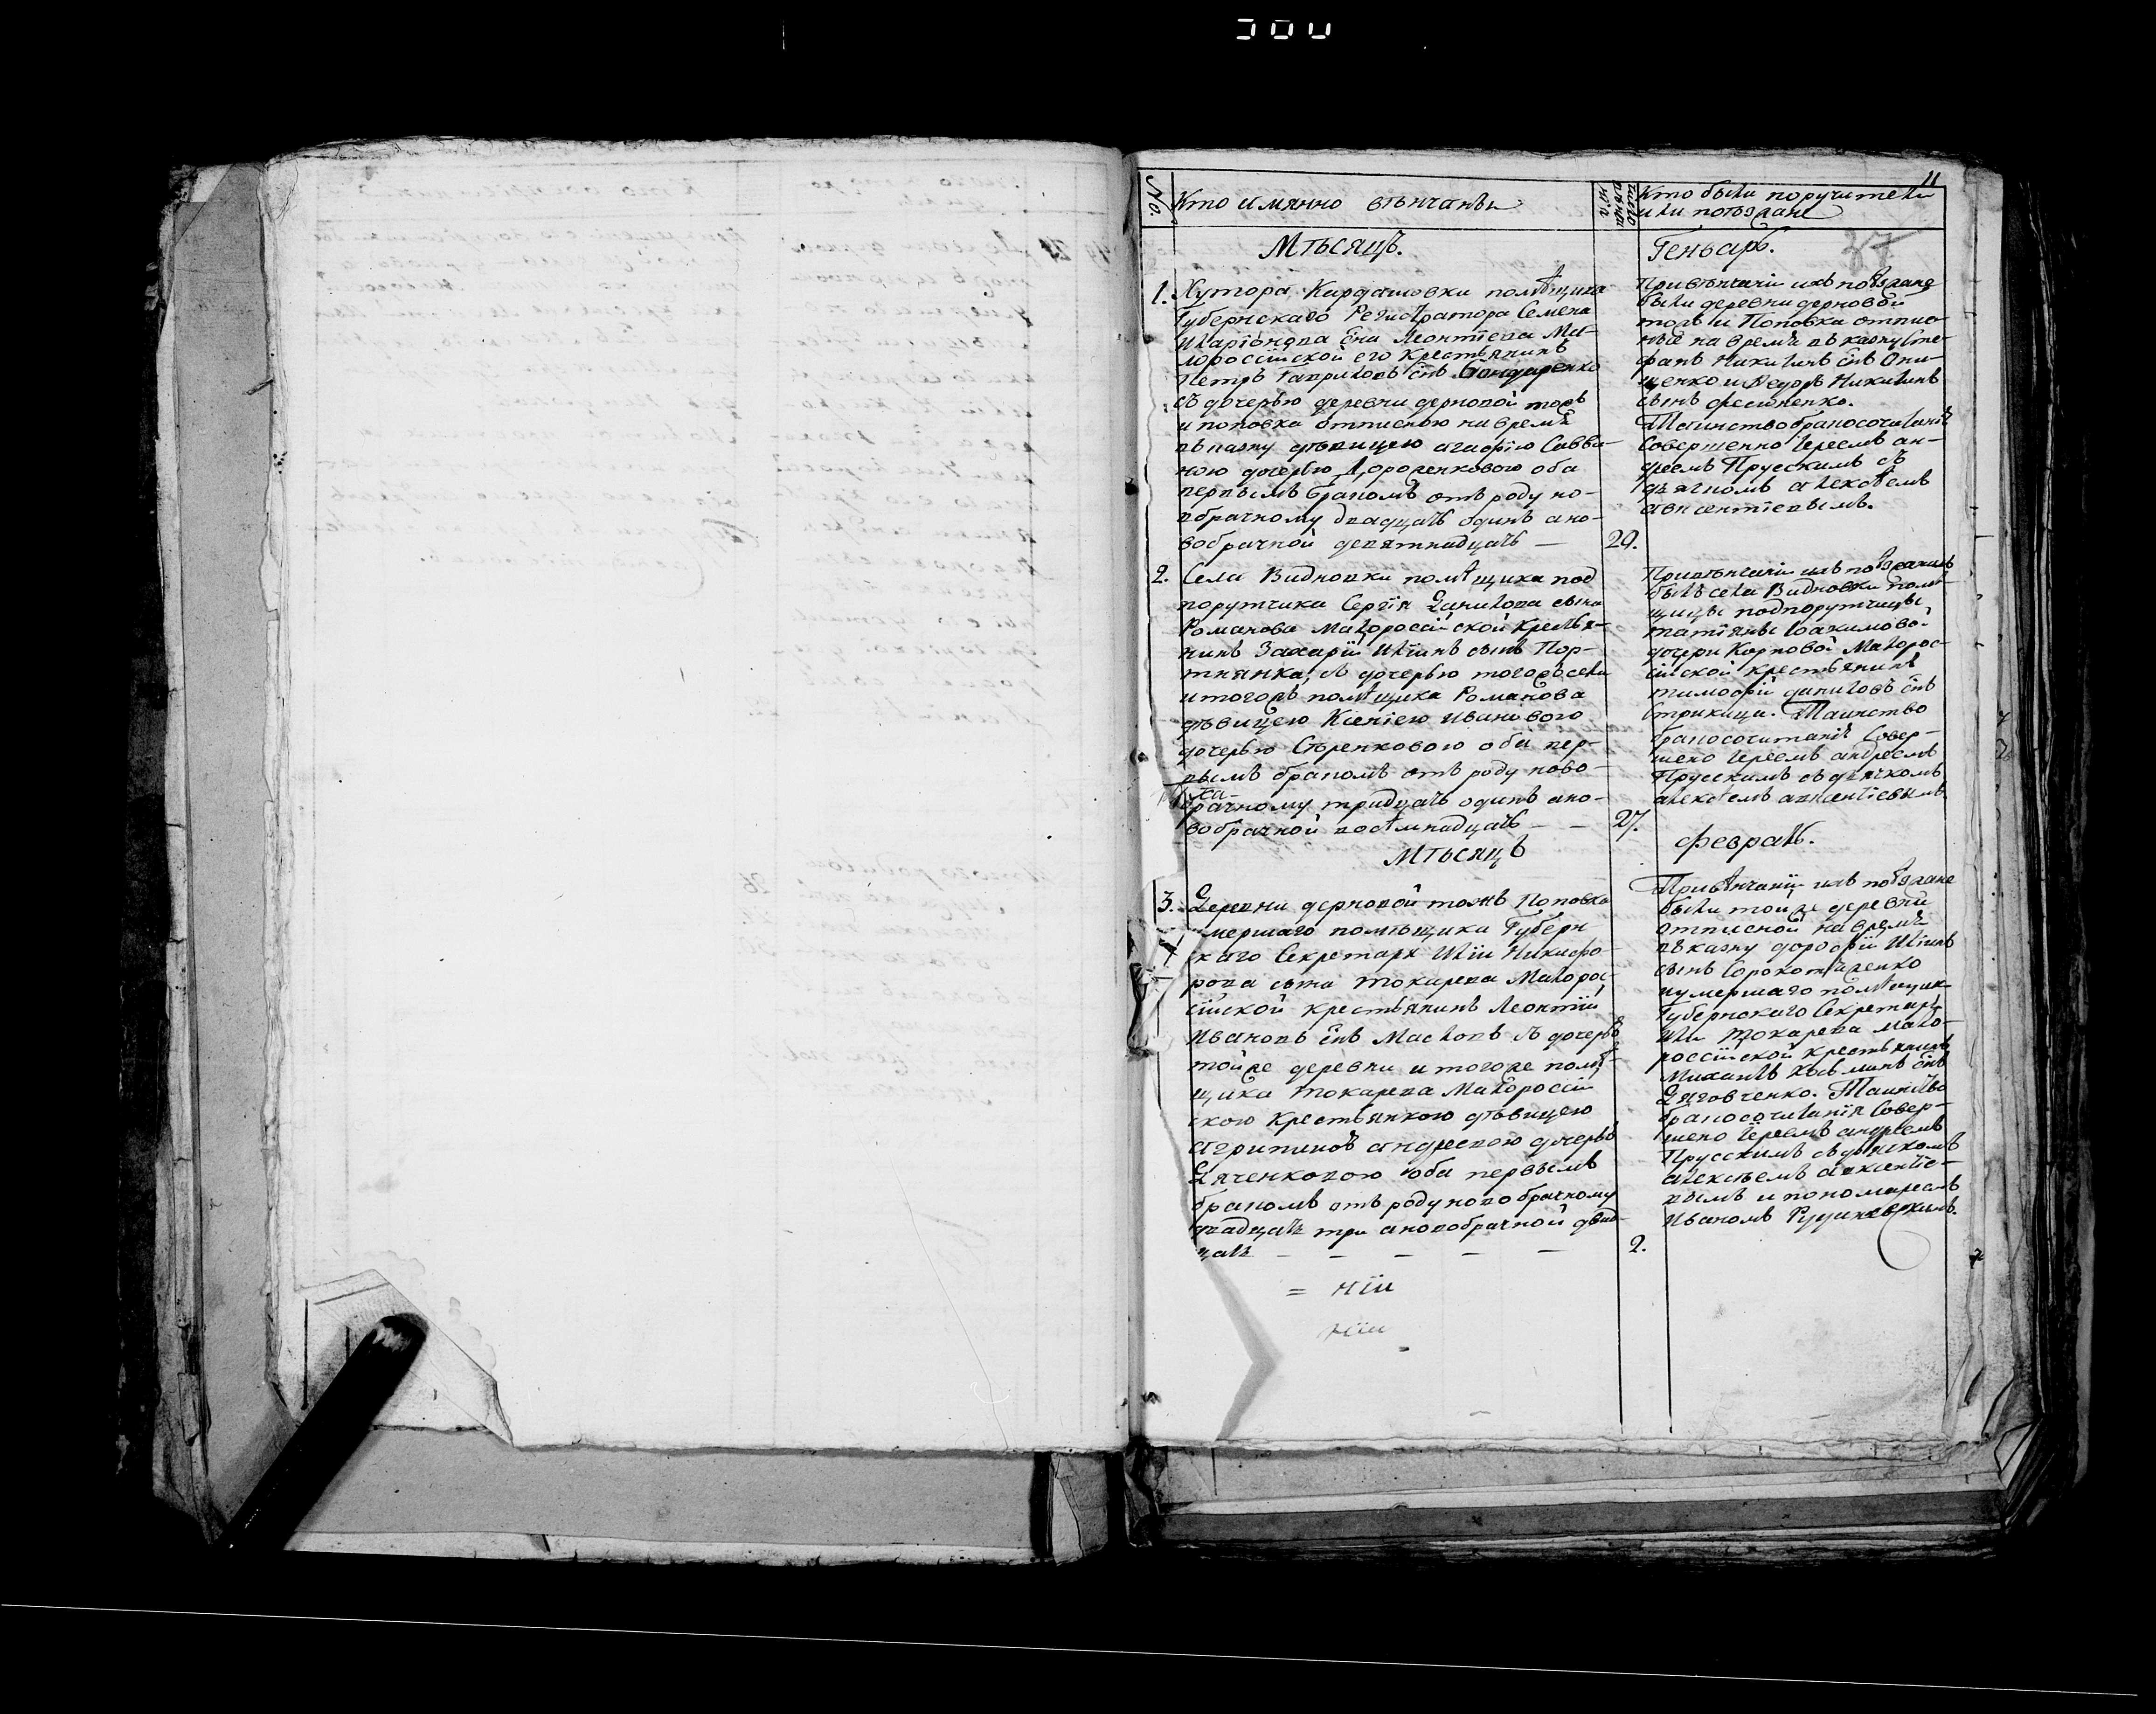 11
№.
Кто имянно вѣнчаны
Кто были поручители
или поѣзжане
37
Мѣсяцъ.
Геньварь.
1.
Хутора Кардашовки помѣщика
Губернскаго Регистратора Семена
Иларіонова сна Леонтіева Ма-
лороссійской его крестьянинъ
Петръ Гавриловъ снъ Бондаренко
съ дочерью деревни дерновой тожъ
и поповка отписною на время
въ казну дѣвицею агафіею Савви-
ною дочерью Дороженковою оба
первымъ бракомъ отъ роду но-
вобрачному двадцать одинъ а но-
вобрачной девятнадцать —
20.
При вѣнчаніи ихъ поѣзжане
были деревни дерновой
тожъ и Поповка отпис-
ные на время въ казну Сте-
фанъ Никитинъ снъ Они-
щенко и Федоръ Никитинъ
сынъ Фесюненко.
Таинство бракосочитанія
Совершенно Іереемъ ан-
дреемъ Прусскимъ съ
дьячкомъ алексѣемъ
авксентіевымъ.
2.
Села Видновки помѣщика под
порутчика Сергія Данилова сына
Романова Малороссійской крестья-
нинъ Захарій Иліинъ сынъ Пор-
тнянка, съ дочерью тогожъ села
и тогожъ помѣщика Романова
дѣвицею Ксеніею Ивановою
дочерью Сѣренковою оба пер-
вымъ бракомъ отъ роду ново-
брачному тридцать одинъ а но-
вобрачной восѣмнадцать — —
27.
При вѣнчаніи ихъ поѣзжанинъ
былъ села Видновки помѣ-
щицы подпорутчицы
татіяны Іоакимовой
дочери Корповой Малорос-
сійской крестьянинъ
тимофій даниловъ снъ
Стрижица. Таинство
бракосочитанія Совер-
шено Іереемъ андреемъ
Прусскимъ съ дьячкомъ
алексѣемъ авксентіевымъ
Мѣсяцъ
Февраль.
3.
Деревни дерновой тожъ Поповка
умершаго помѣщика Губерн
скаго Секретаря Иліи Никифо-
рова сына токарева Малорос-
сійской крестьянинъ Леонтій
Ивановъ снъ Масловъ съ дочерью
тойже деревни и тогоже помѣ-
щика токарева Малороссій
скою крестьянкою дѣвицею
агрипиною андреевою дочерью
Дяченковою оба первымъ
бракомъ отъ роду новобрачному
двадцать три а новобрачной двад-
цать — — — — —
2.
При вѣнчаніи ихъ поѣзжане
были тойже деревни
отписной на время
въ казну дорофій Иліинъ
сынъ
и умершаго помѣщик
Губернскаго Секретаря
Иліи токарева мало-
россійской крестьянинъ
Михаилъ Косьминъ снъ
Дяговченко. Таинство
бракосочитанія Совер-
шено Іереемъ андреемъ
Прусскимъ съ дьячкомъ
алексѣемъ авксентіе-
вымъ и пономаремъ
Иваномъ
= нiи
нiи